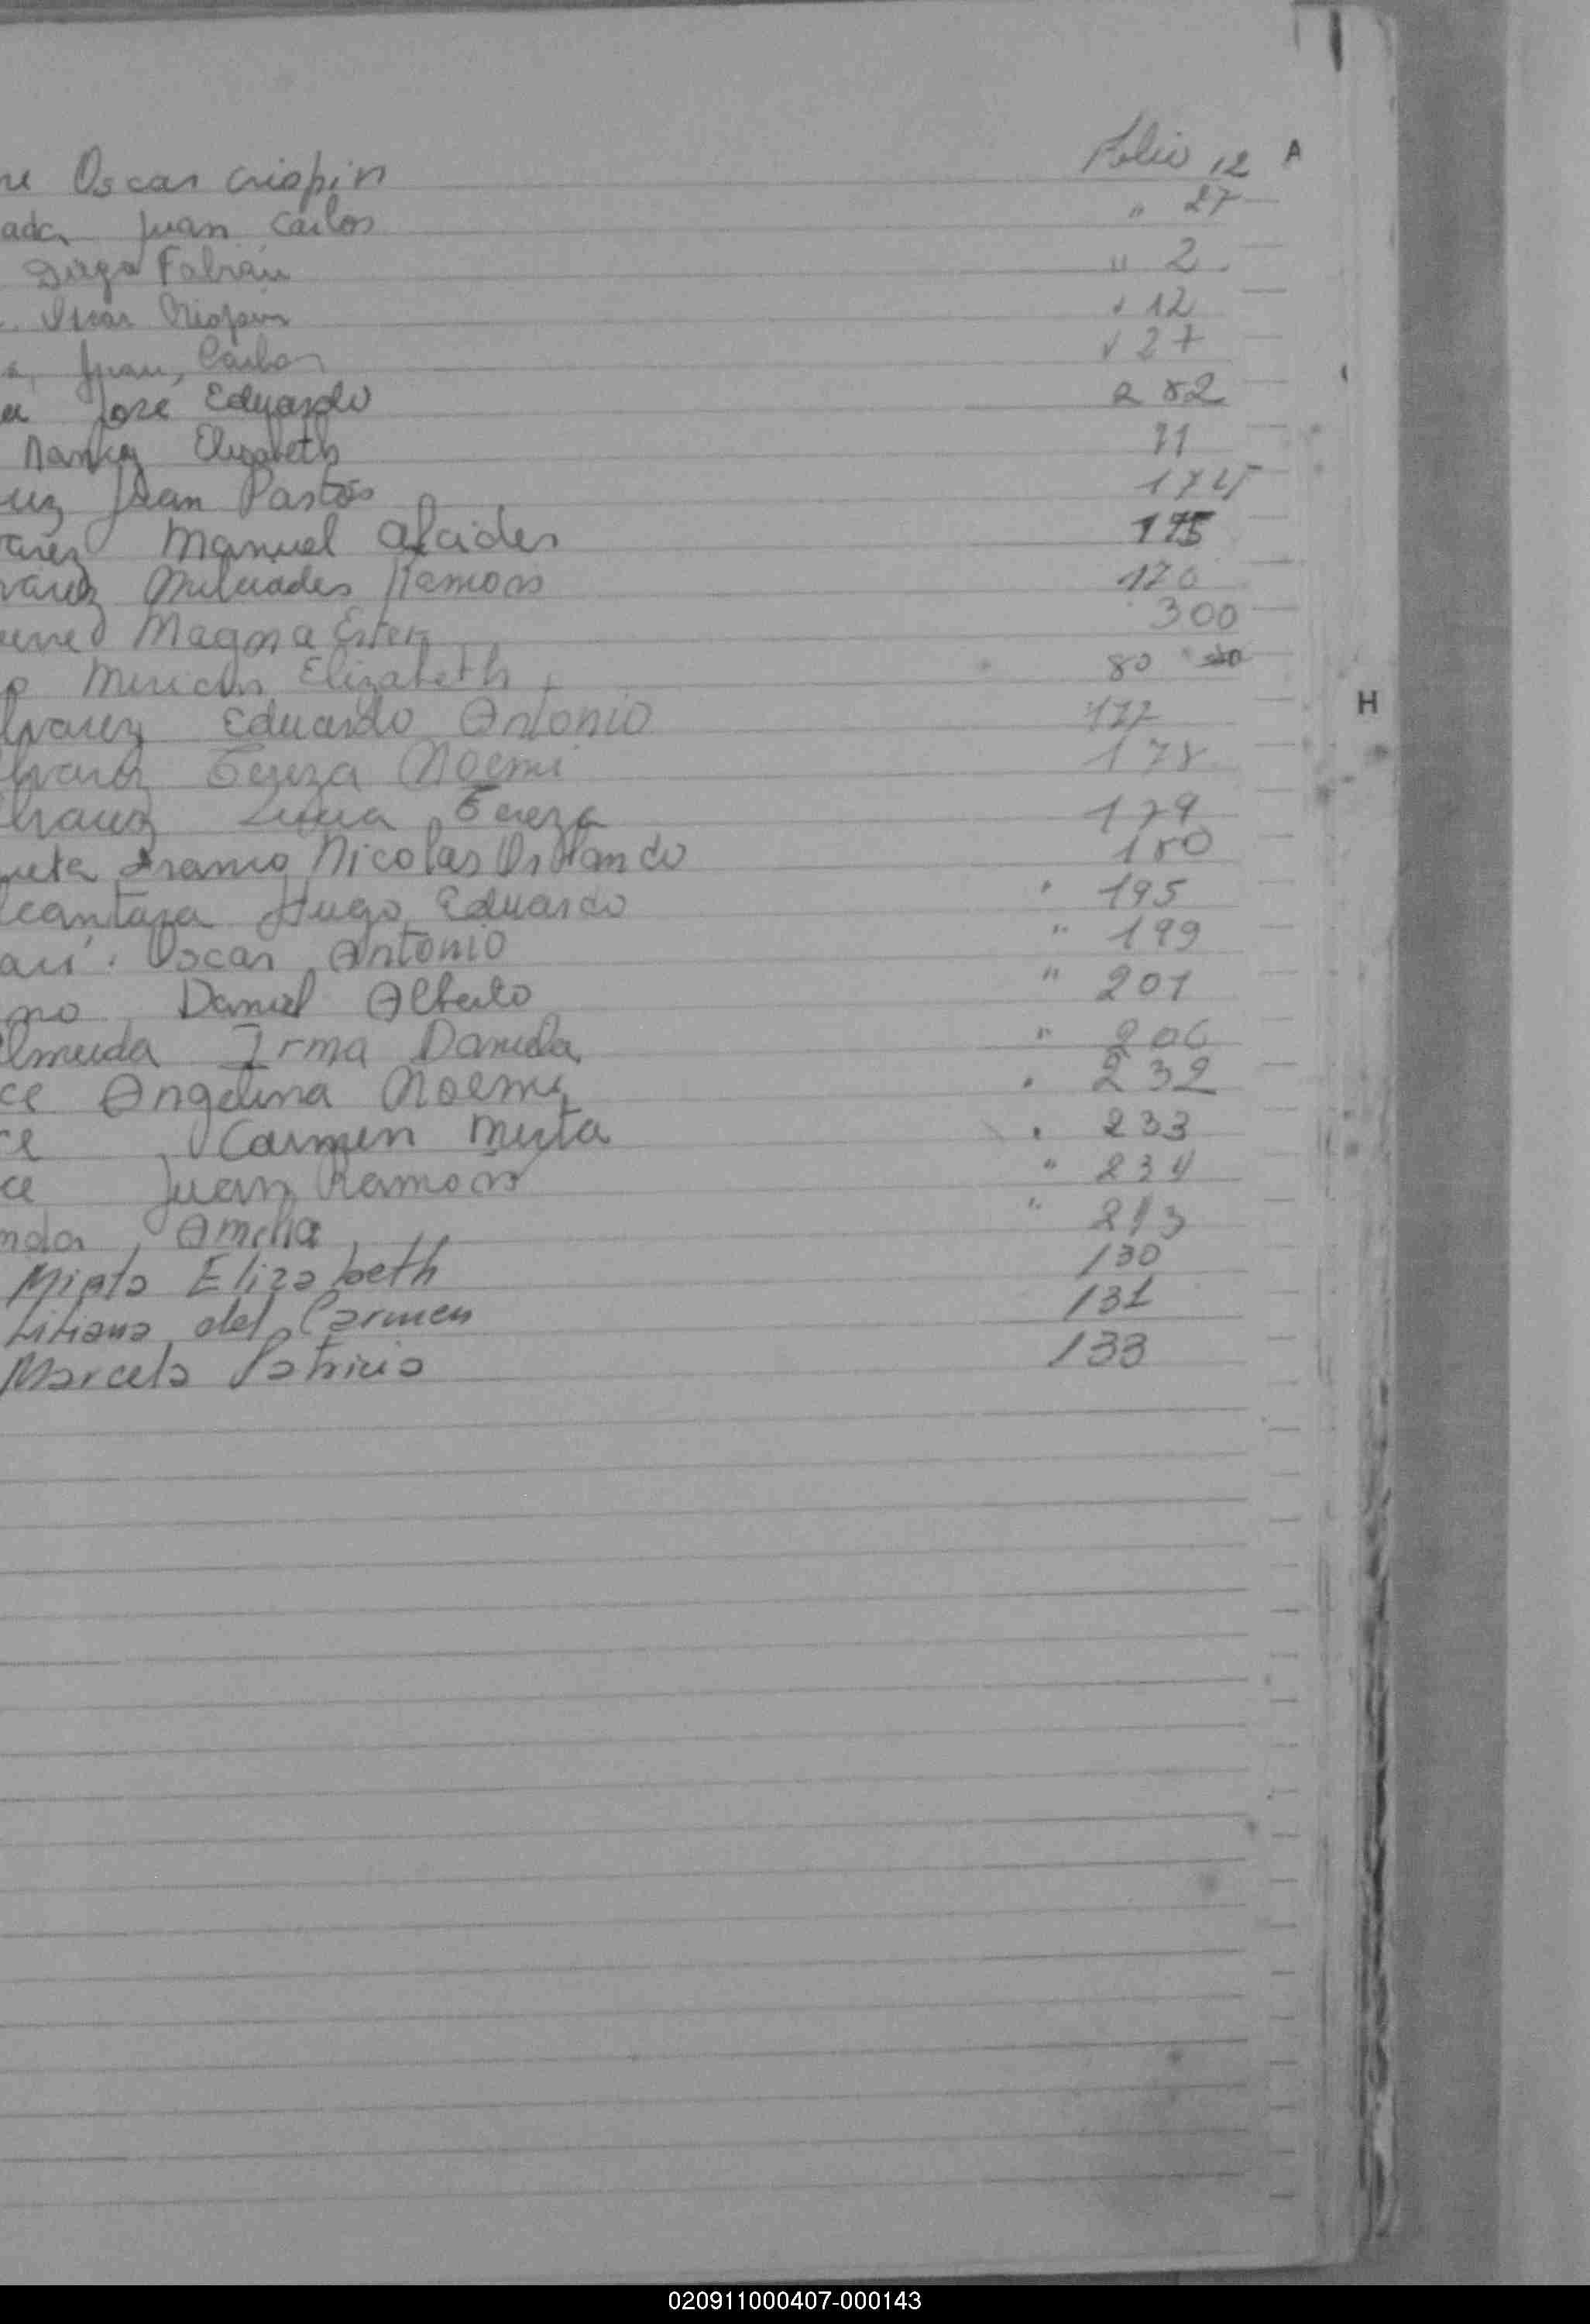 re Oscar Crispin Folio 12 A
ada Juan Carlos " 27
Diego Fabian " 2
Oscar Crispin " 12
a, Juan, Carlos " 27
Jose Eduardo 282
Nancy Elizabeth 71
uz Juan Pastor 174
arez Manuel Alcides 175
varez Milciades Ramon 176
Magna Ester 300
o Miriam Elizabeth 80
lvarez Eduardo Antonio 177 H
lvarez Tereza Noemi 178
lvarez Tereza 179
ueta Franco Nicolas Orlando 180
lcantara Hugo Eduardo " 195
ari Oscar Antonio " 199
no Daniel Alberto " 201
lmeida Irma Daniela " 206
ce Angelina Noemi " 232
ce Carmen Mirta " 233
ce Juan Ramon " 234
nda Amelia " 213
Mirta Elizabeth 130
Liliana del Carmen 131
Marcela Patricia 133
020911000407-000143